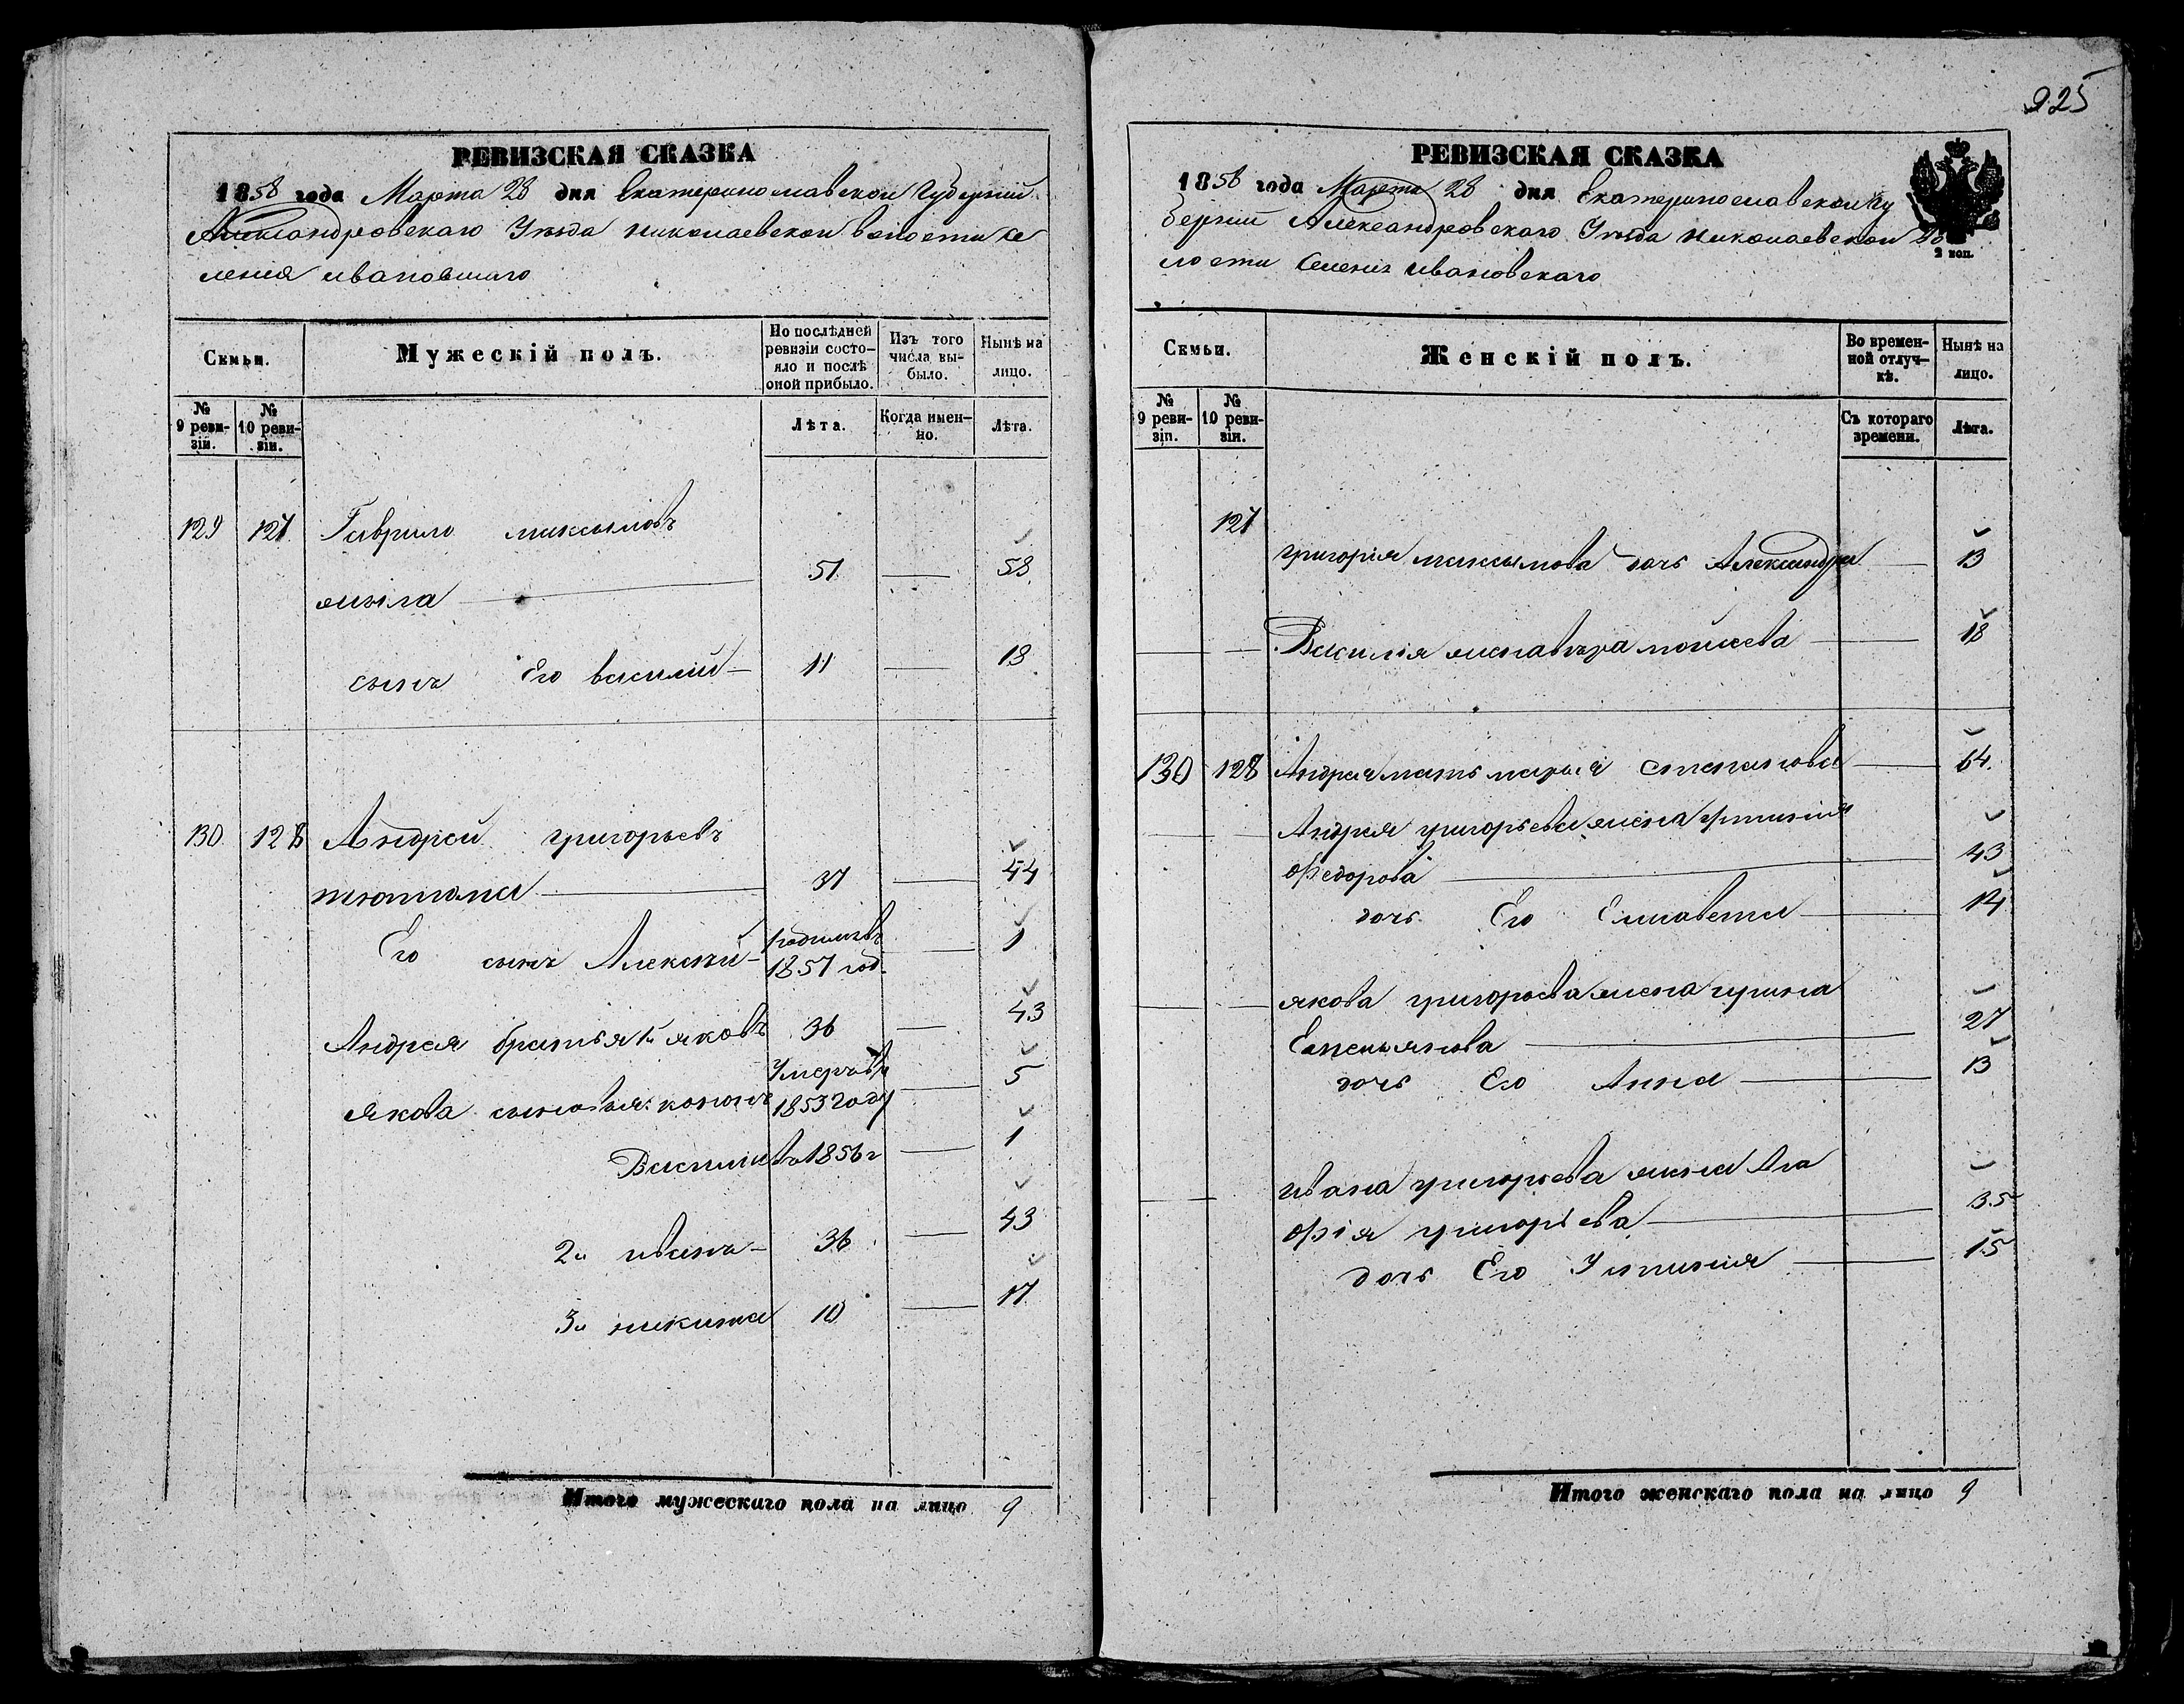 925
РЕВИЗСКАЯ СКАЗКА
1858 года Марта 28 дня Екатеринославской Губернии
Александровскаго Уѣзда николаевской волости се
ления ивановскаго
Семьи.
Мужескій полъ.
По послѣдней ревизіи состо-яло и послѣ оной прибыло.
Изъ того числа вы-было.
Нынѣ на лицо.
№ 9 реви-зіи.
№ 10 реви-зіи.
Лѣта.
Когда имен-но.
Лѣта.
129 127 Гаврило максымовъ
51 58
сынъ Его василий 11 18
130 128 Андрей григорьевъ
37 44
Его сынъ Алексѣй 1
1857 год.
Андрея братья 1й яковъ 36 43
Якова сыновья кононъ 1853 году 5
Василий въ 1856 г 1
2й иванъ 36 43
3й никита 10 17
Итого мужескаго пола на лицо 9
РЕВИЗСКАЯ СКАЗКА
1858 года Марта 28 дня Екатеринославской Гу
берний Александровскаго Уѣзда николаевской во
лости Селения ивановскаго
2 коп.
Семьи.
Женскій полъ.
Во времен-ной отлуч-кѣ.
Нынѣ на лицо.
№ 9 реви-зіи.
№ 10 реви-зіи.
Съ котораго времени.
Лѣта.
127
григория максымова дочь Александра 13
Василия жена мойсева 18
130 128 Андрея мать марыя степанова 64
Андрея григорьева жена
Федорова 43
дочь Его Елисавета 14
якова григорьева жена ирина
Емельянова 27
дочь Его Анна 13
ивана григорьева жена Ага
фія григорьева 35
дочь Его Устиния 15
Итого женскаго пола на лицо 9